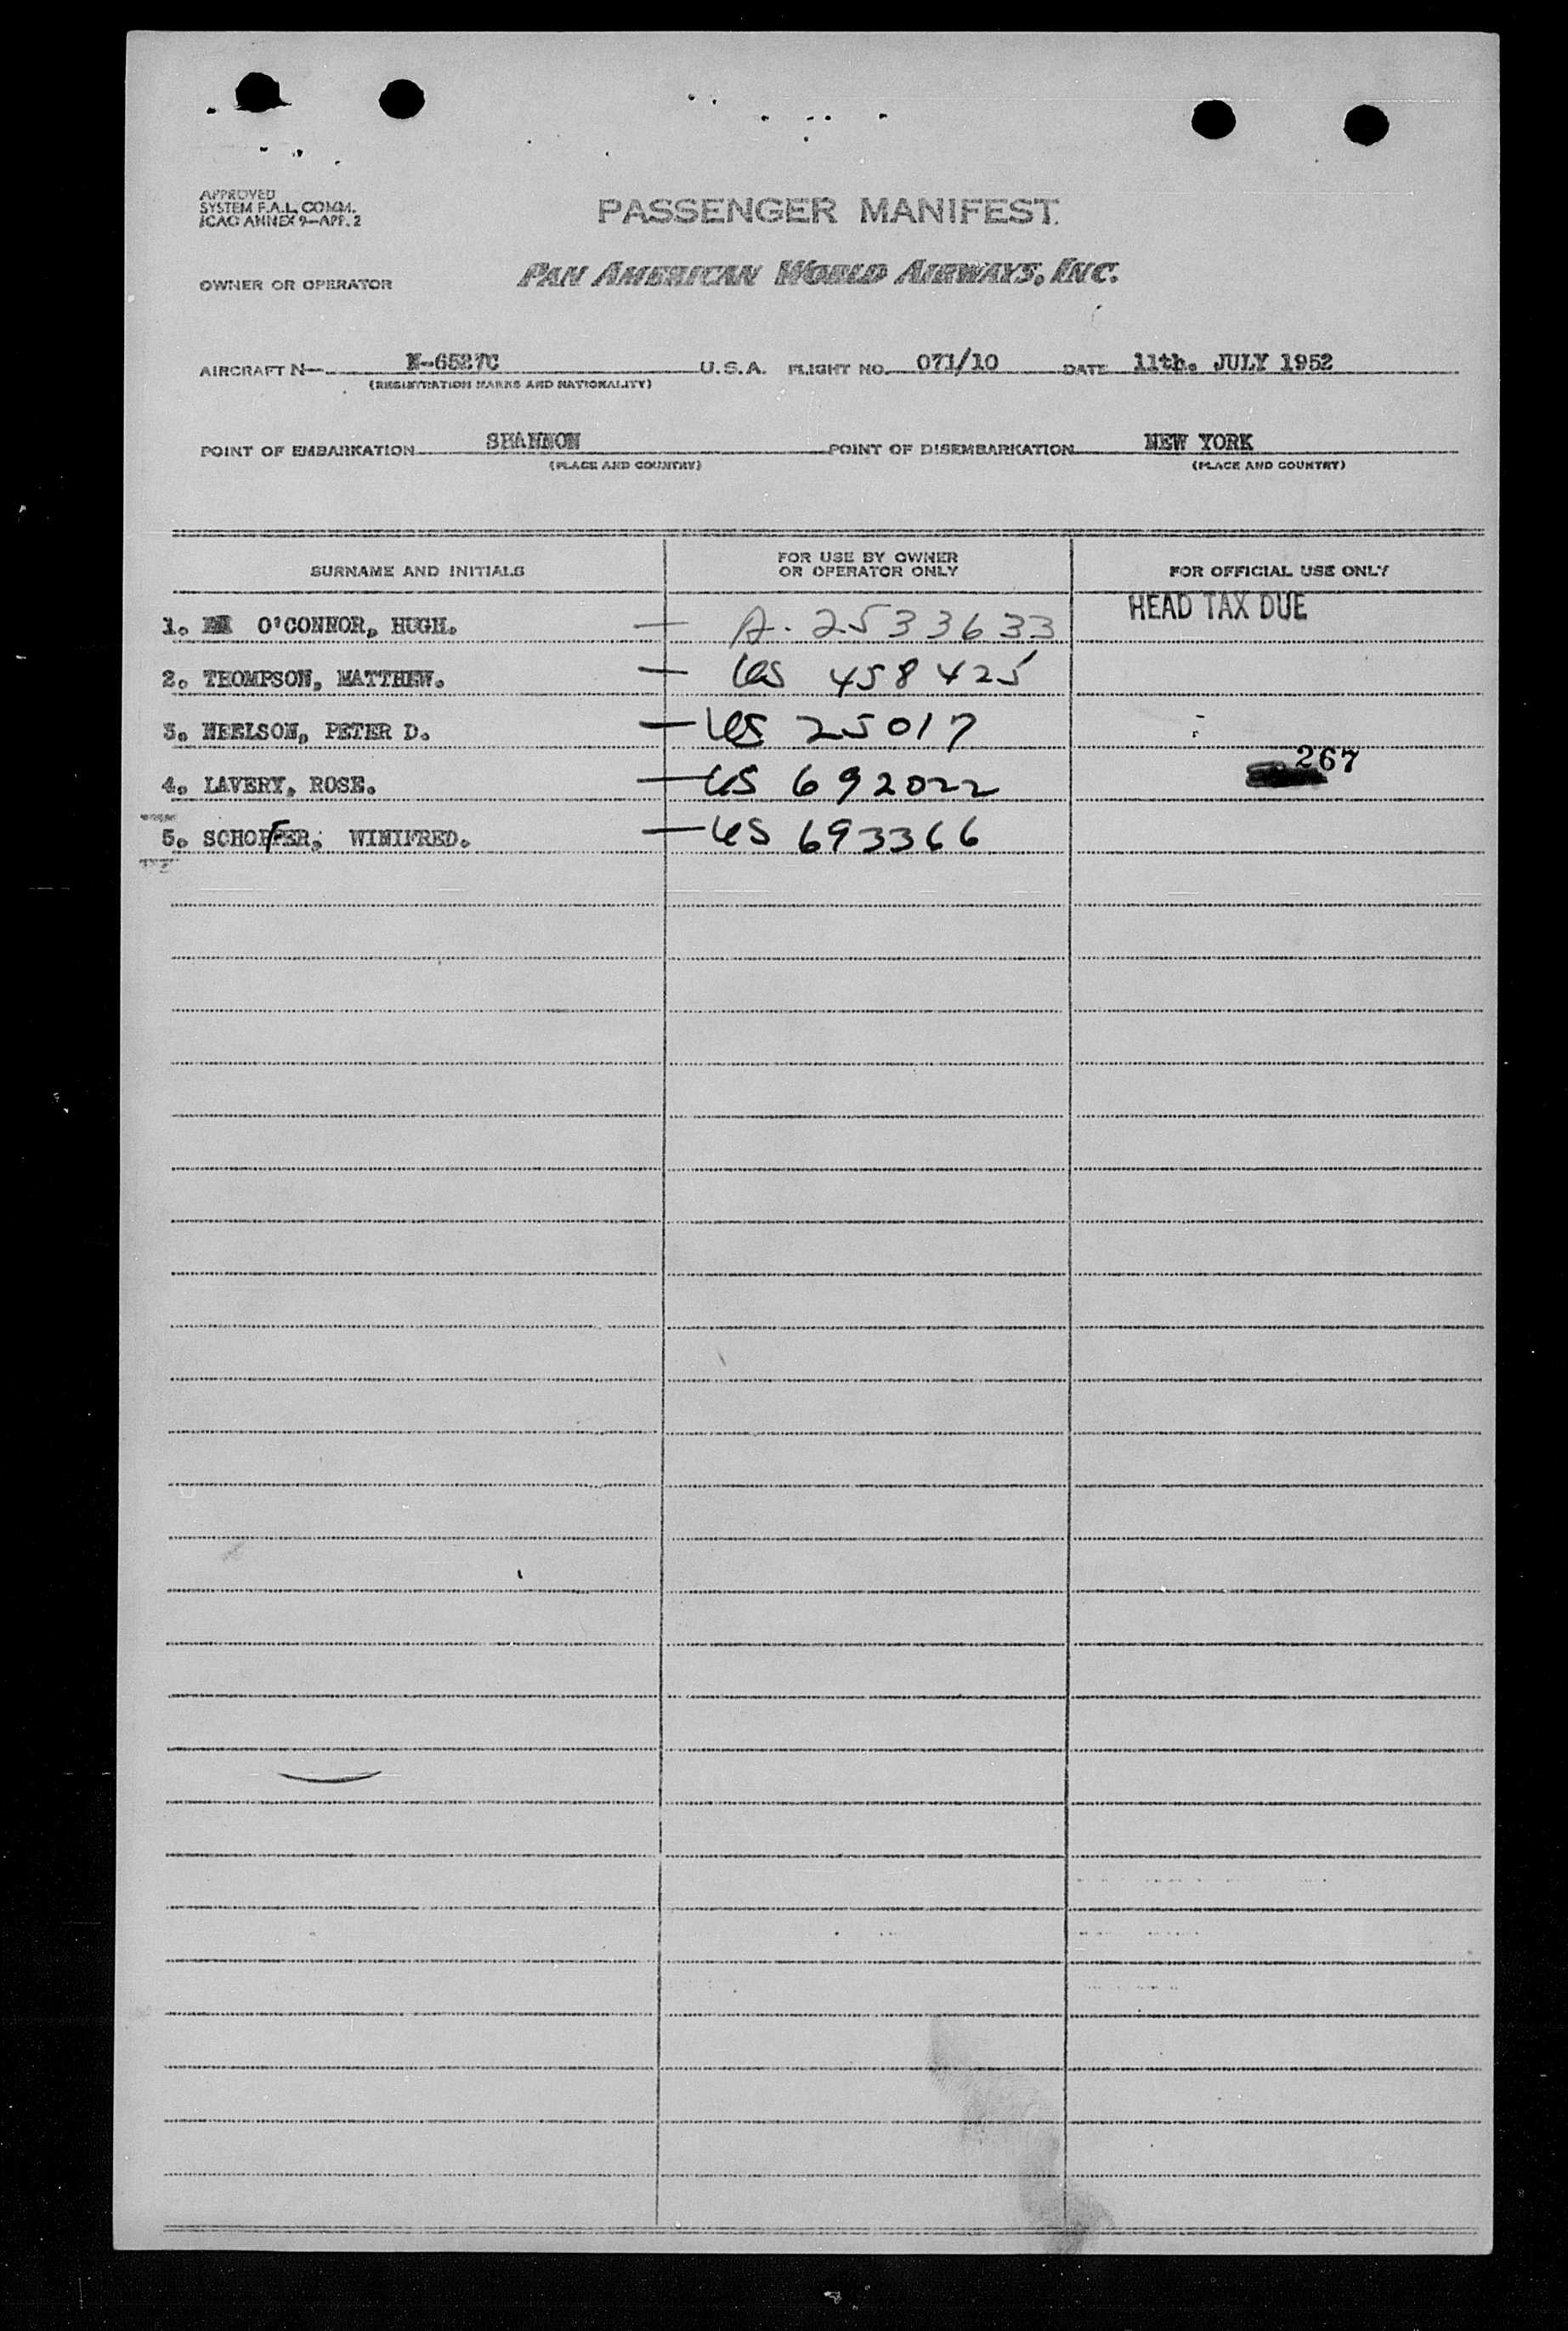 APPROVED
SYSTEM F.A.L. COMM.
ICAO ANNEX 9—APP. 2
PASSENGER MANIFEST
OWNER OR OPERATOR PAN AMERICAN WORLD AIRWAYS, INC.
AIRCRAFT N— N-6527C U.S.A. FLIGHT NO. 071/10 DATE 11th. JULY 1952
(REGISTRATION MARKS AND NATIONALITY)
POINT OF EMBARKATION SHANNON POINT OF DISEMBARKATION NEW YORK
(PLACE AND COUNTRY) (PLACE AND COUNTRY)
SURNAME AND INITIALS FOR USE BY OWNER OR OPERATOR ONLY FOR OFFICIAL USE ONLY
HEAD TAX DUE
1. O'CONNOR, HUGH. — A-2533633
2. THOMPSON, MATTHEW. — US 458425
3. NEELSON, PETER D. — US 25017
267
4. LAVERY, ROSE. — US 692022
5. SCHOFFER, WINIFRED. — US 693366